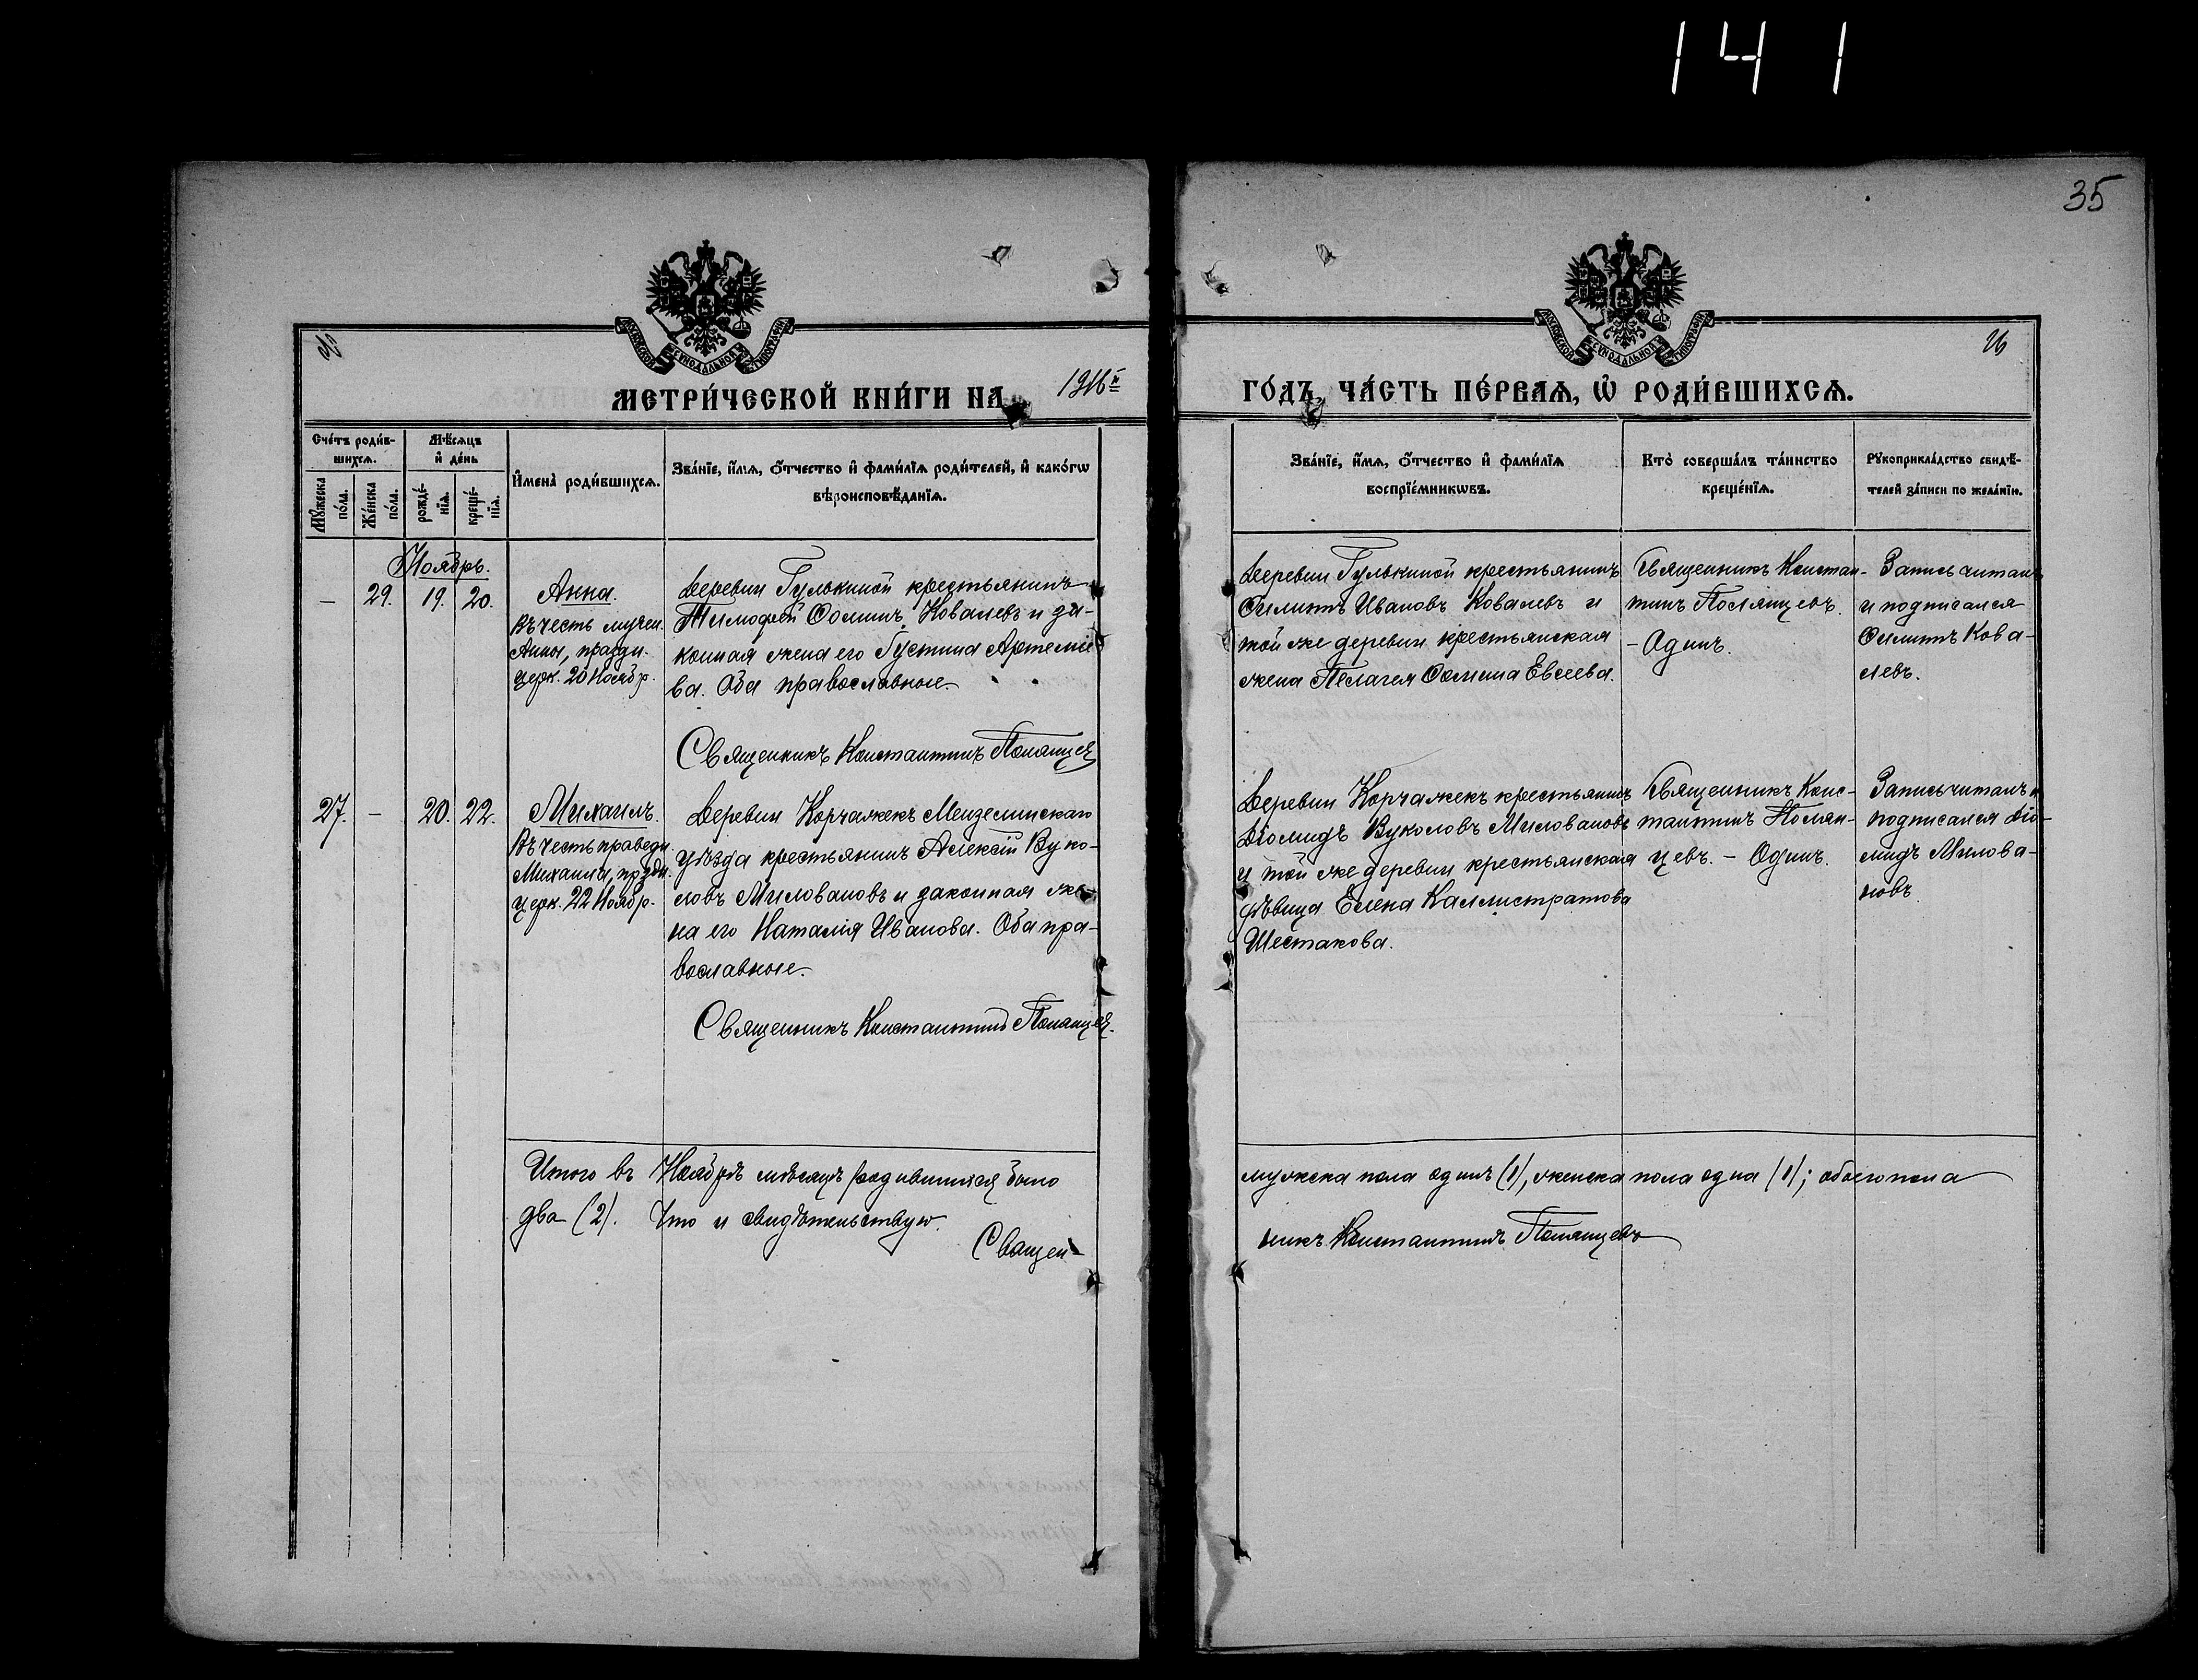 141
35
МОСКОВСКОЙ СѴНОДАЛЬНОЙ ТИПОГРАФІИ
МОСКОВСКОЙ СѴНОДАЛЬНОЙ ТИПОГРАФІИ
МЕТРИ́ЧЕСКОЙ КНИ́ГИ НА 1916й
ГО́ДЪ, ЧА́СТЬ ПЕ́РВАѦ, Ѡ҆ РОДИ́ВШИХСѦ.
Сче́тъ роди́в-
шихсѧ.
Мѣ́сѧцъ
и҆ де́нь
Мꙋ́жеска по́ла.
Же́нска по́ла.
рожде́-
нїѧ.
креще́-
нїѧ.
И҆мена̀ роди́вшихсѧ.
Зва́нїе, и҆́мѧ, ѻ҆́тчество и҆ фами́лїѧ роди́телей, и҆ како́гѡ
вѣроисповѣ́данїѧ.
Зва́нїе, и҆́мѧ, ѻ҆́тчество и҆ фами́лїѧ
воспрїе́мникѡвъ.
Кто̀ соверша́лъ та́инство
креще́нїѧ.
Рꙋкоприкла́дство свидѣ́-
телей за́писи по жела́нїю.
Ноябрь.
— 29. 19. 20.
Анна.
Въ честь мучен.
Анны, праздн.
церк. 20 Ноябр.
Деревни Гулькиной крестьянинъ
Тимофей Ѳоминъ Ковалевъ и за-
конная жена его Густина Артемье-
ва. Оба православные.
Священникъ Константинъ Полянцев
Деревни Гулькиной крестьянинъ
Филиппъ Ивановъ Ковалевъ и
той же деревни крестьянская
жена Пелагея Ѳомина Евсеева.
Священникъ Констан-
тинъ Полянцевъ.
- Одинъ.
Запись читалъ
и подписался
Филиппъ Кова-
левъ.
27. — 20. 22.
Михаилъ.
Въ честь праведн.
Михаила, праздн.
церк. 22 Ноябр.
Деревни Корчажекъ Мензелинскаго
уѣзда крестьянинъ Алексій Вуко-
ловъ Миловановъ и законная же-
на его Наталія Иванова. Оба пра-
вославные.
Священникъ Константинъ Полянцев.
Деревни Корчажекъ крестьянинъ
Діомидъ Вуколовъ Миловановъ
и той же деревни крестьянская
дѣвица Елена Каллистратова
Шестакова.
Священникъ Конс-
тантинъ Полян-
цевъ. - Одинъ.
Запись читалъ и
подписался Діо-
мидъ Милова-
новъ.
Итого въ Ноябрѣ мѣсяцѣ родившихся было
мужска пола одинъ (1), женска пола одна (1); обоего пола
два (2). Что и свидѣтельствую.
Священ-
никъ Константинъ Полянцевъ